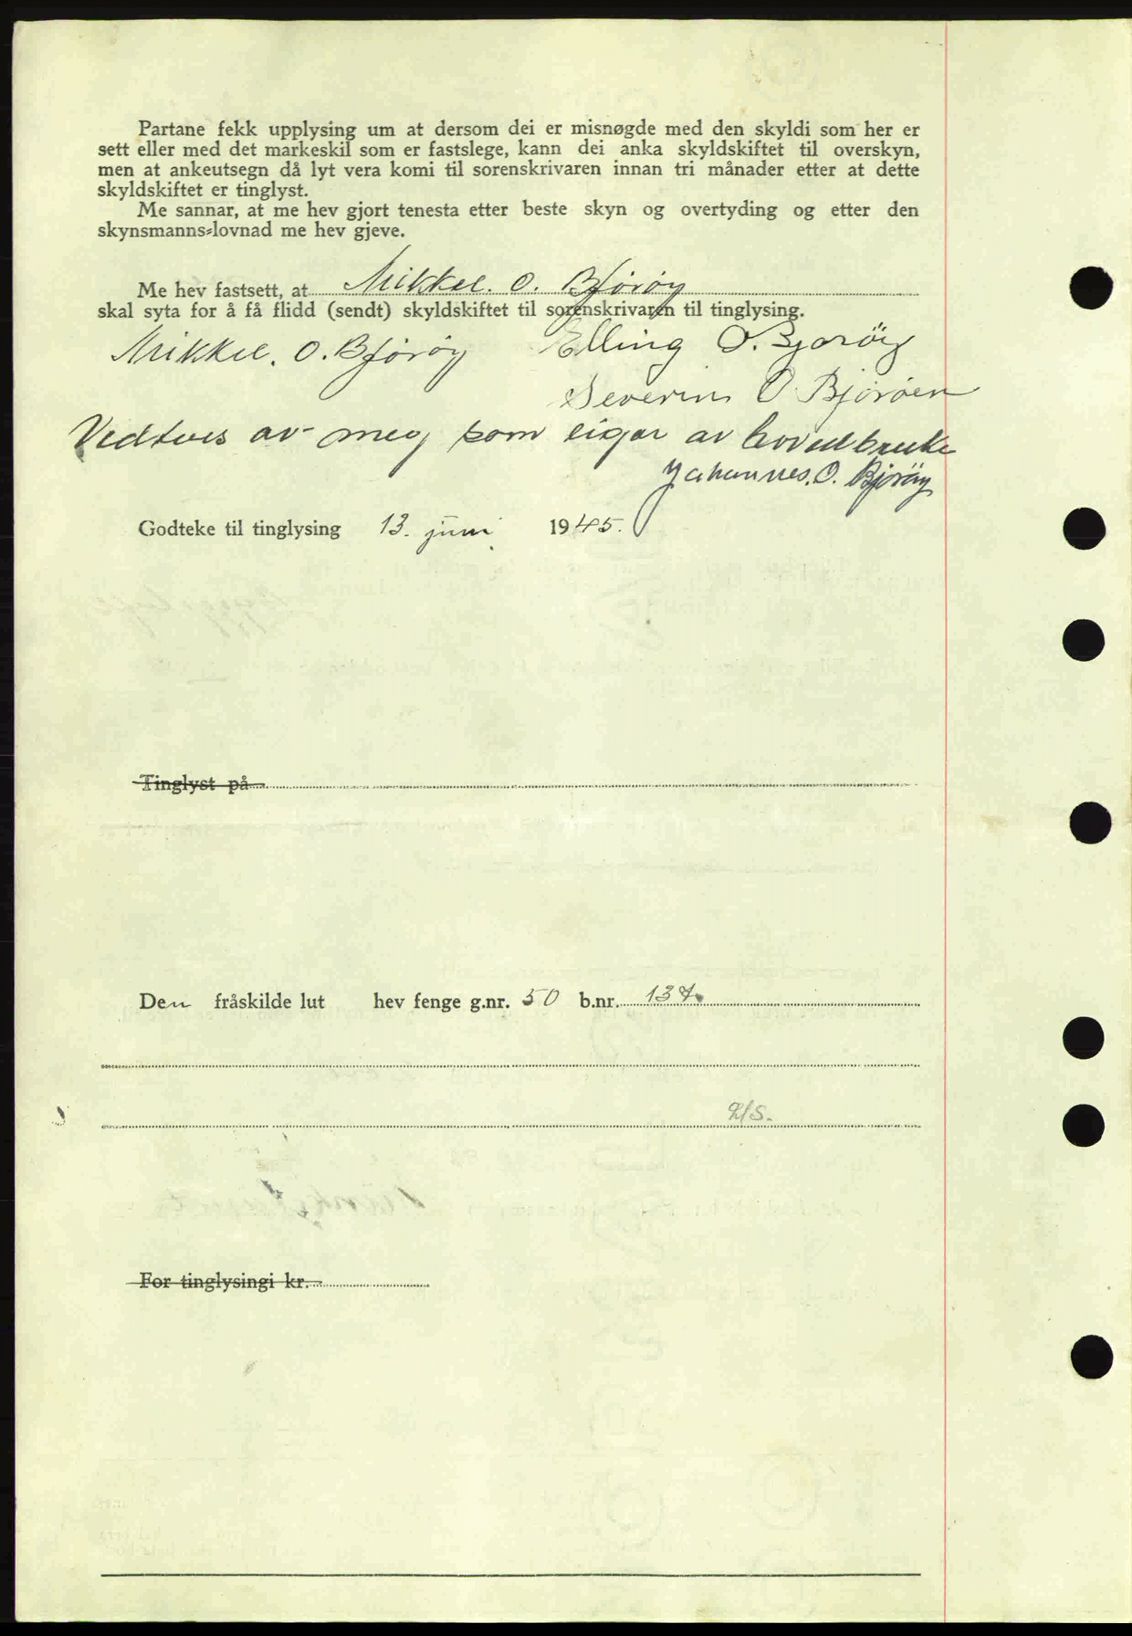 Partane fekk upplysing um at dersom dei er misnøgde med den skyldi som her er
sett eller med det markeskil som er fastslege, kann dei anka skyldskiftet til overskyn,
men at ankeutsegn då lyt vera komi til sorenskrivaren innan tri månader etter at dette
skyldskiftet er tinglyst.
Me sannar, at me hev gjort tenesta etter beste skyn og overtyding og etter den
skynsmanns-lovnad me hev gjeve.
Me hev fastsett, at Mikkel. O. Björöy
skal syta for å få flidd (sendt) skyldskiftet til sorenskrivaren til tinglysing.
Mikkel. O. Björöy Elling O. Bjoröy
Severin O Björöen
Vedtoes av meg som eigar av hovedbruke
Johannes. O. Björöy
Godteke til tinglysing 13. juni 1945.
Tinglyst på
Den fråskilde lut hev fenge g.nr. 50 b.nr. 137.
For tinglysingi kr.